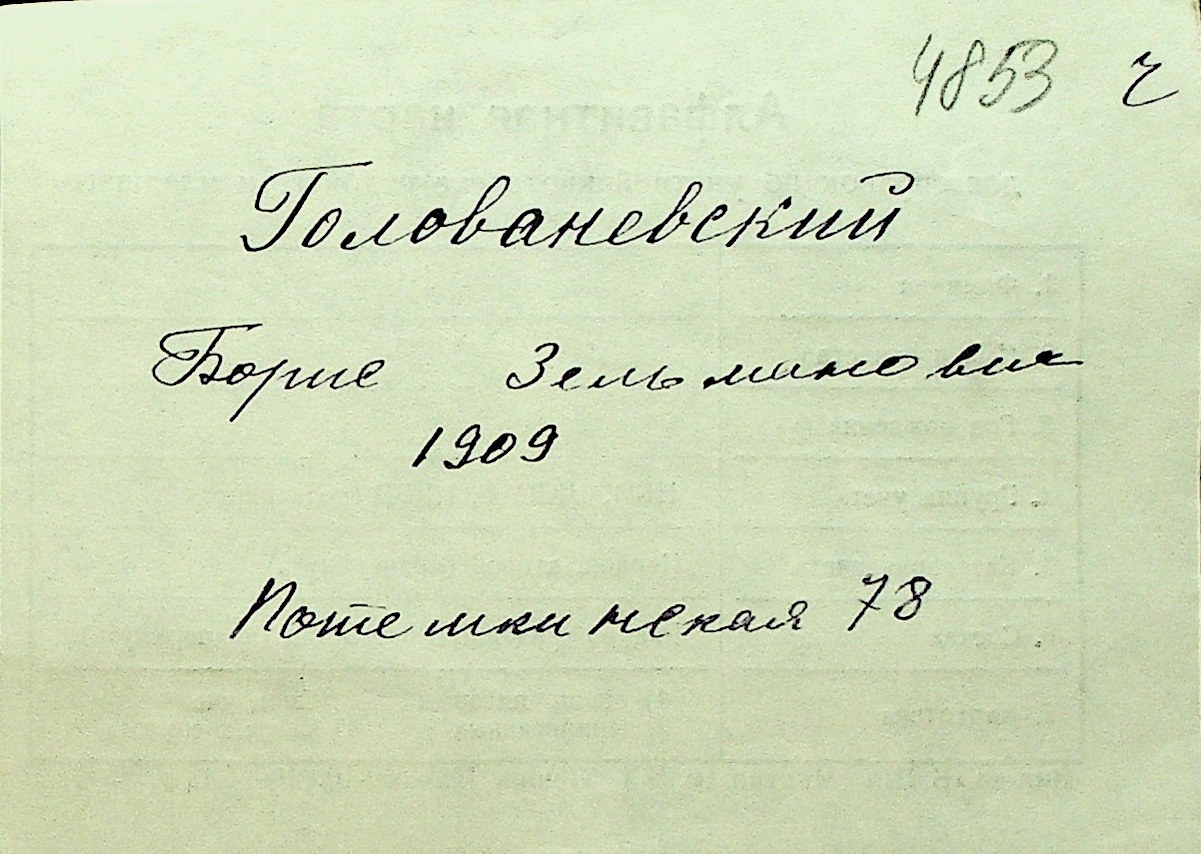 4853 ч
Голованевский
Борис Зельманович
1909
Потемкинская 78